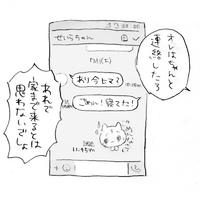 オレはちゃんと
連絡したろ
せいらちゃん
今ヒマ?
ごめん!寝てた!
あれで
家まで来るとは
思わないでしょ